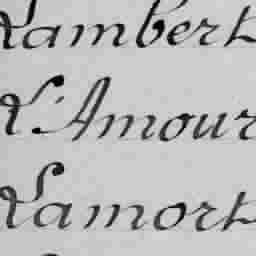 Lambert
L'Amour
Lamort